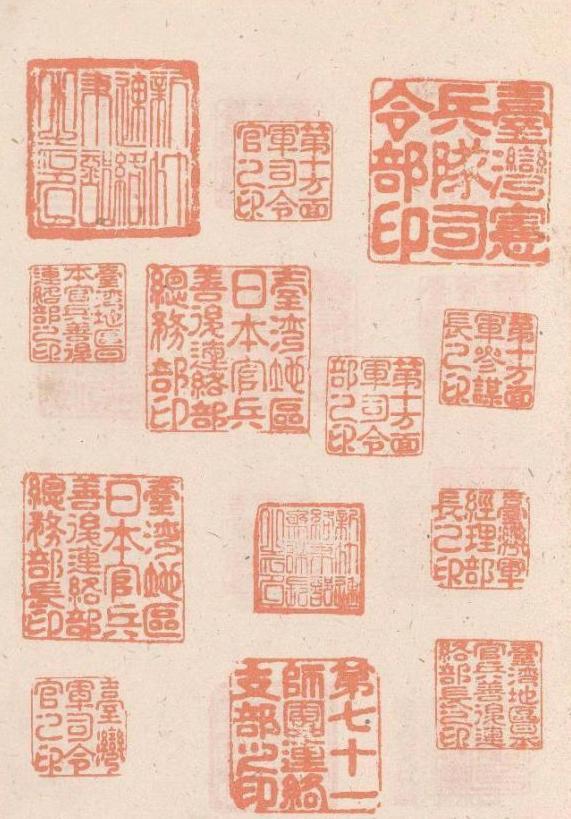 臺灣憲
兵隊司
令部印
第十方面
軍司令
官之印
新竹
連絡
第十方面
軍參謀
長之印
臺湾地區
日本官兵
善後連絡部
總務部印
臺湾地區日
本官兵善後
連絡部之印
第十方面
軍司令
部之印
臺灣軍
經理部
長之印
新竹連
臺湾地區
日本官兵
善後連絡部
總務部長印
臺湾地區日本
官兵善後連
絡部長之印
第七十一
師團連絡
支部之印
臺灣
軍司令
官之印